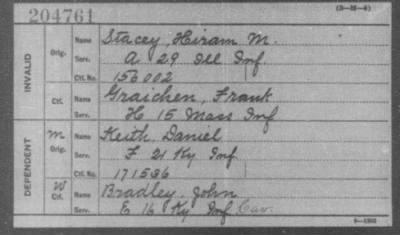 204761 (3-25-4)
INVALID
Orig. Name Stacey, Hiram M.
Serv. A 29 Ill Inf.
Ctf. No. 156002
Ctf. Name Graichen, Frank
Serv. H 15 Mass Inf
DEPENDENT
M Orig. Name Keith, Daniel
Serv. F 21 Ky Inf
Ctf. No. 171536
W Ctf. Name Bradley, John
Serv. E 16 Ky Inf Cav.